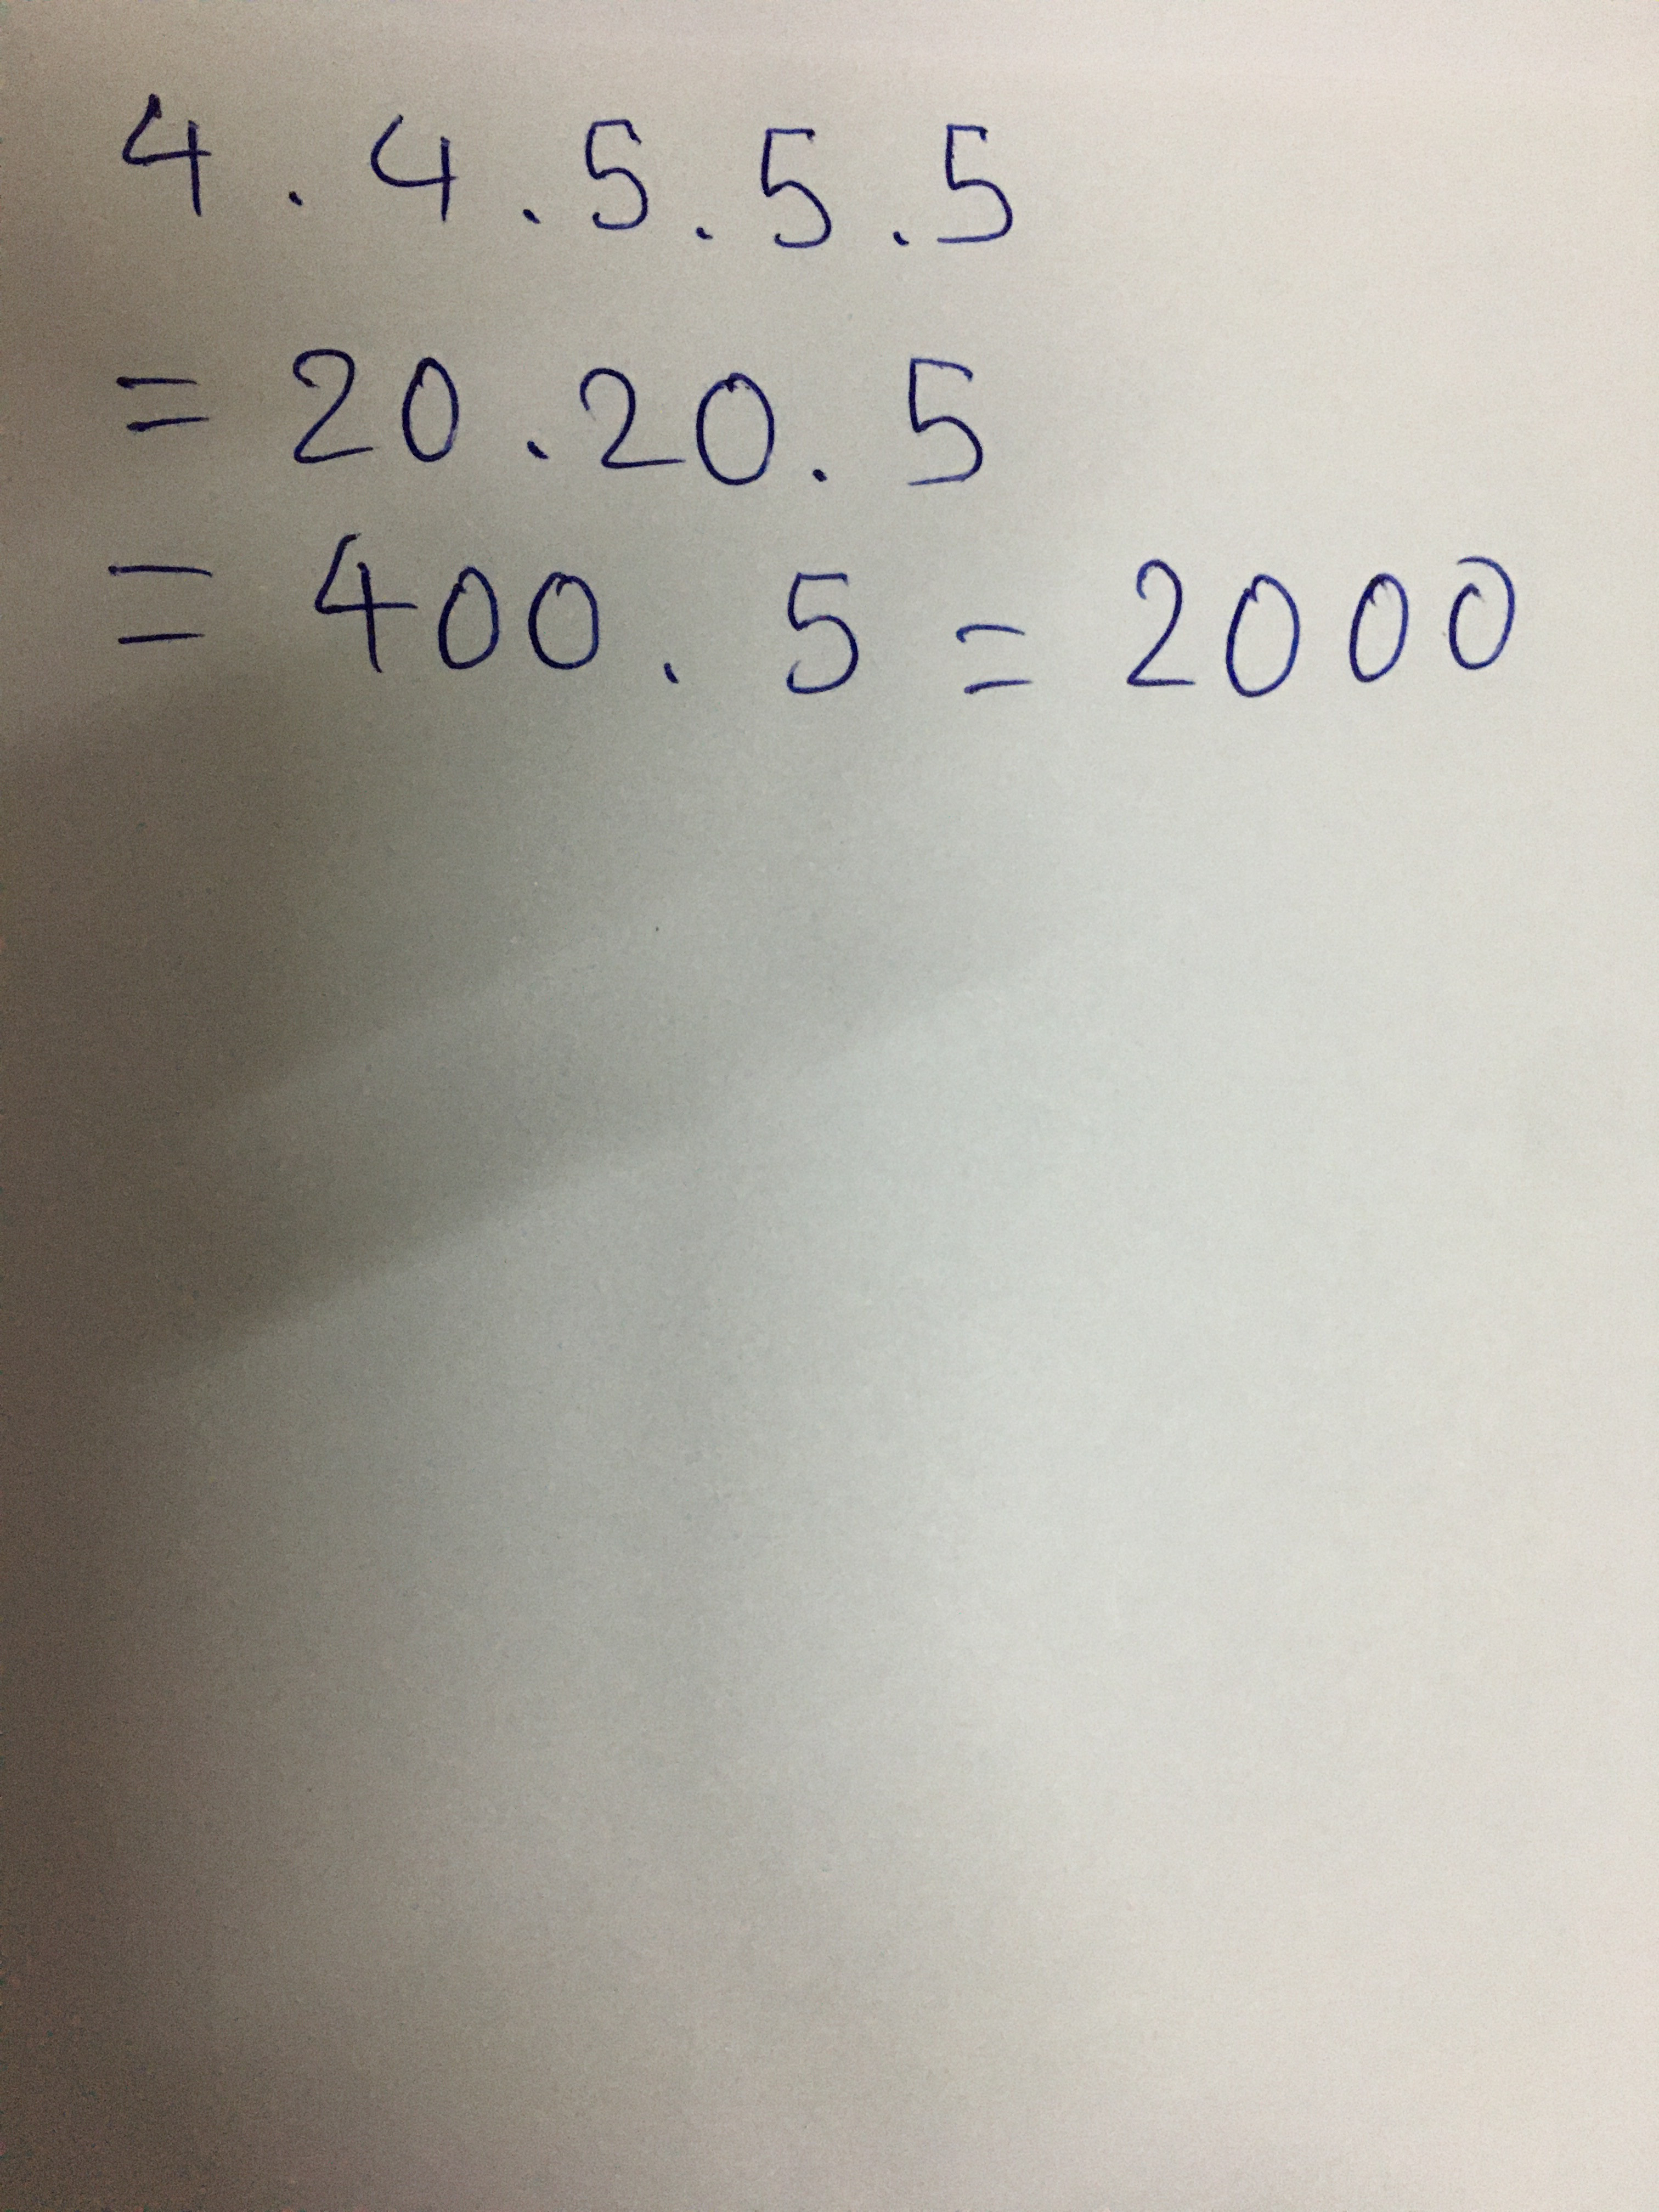 4 . 4 . 5 . 5 . 5
= 20 . 20 . 5
= 400 . 5 = 2000